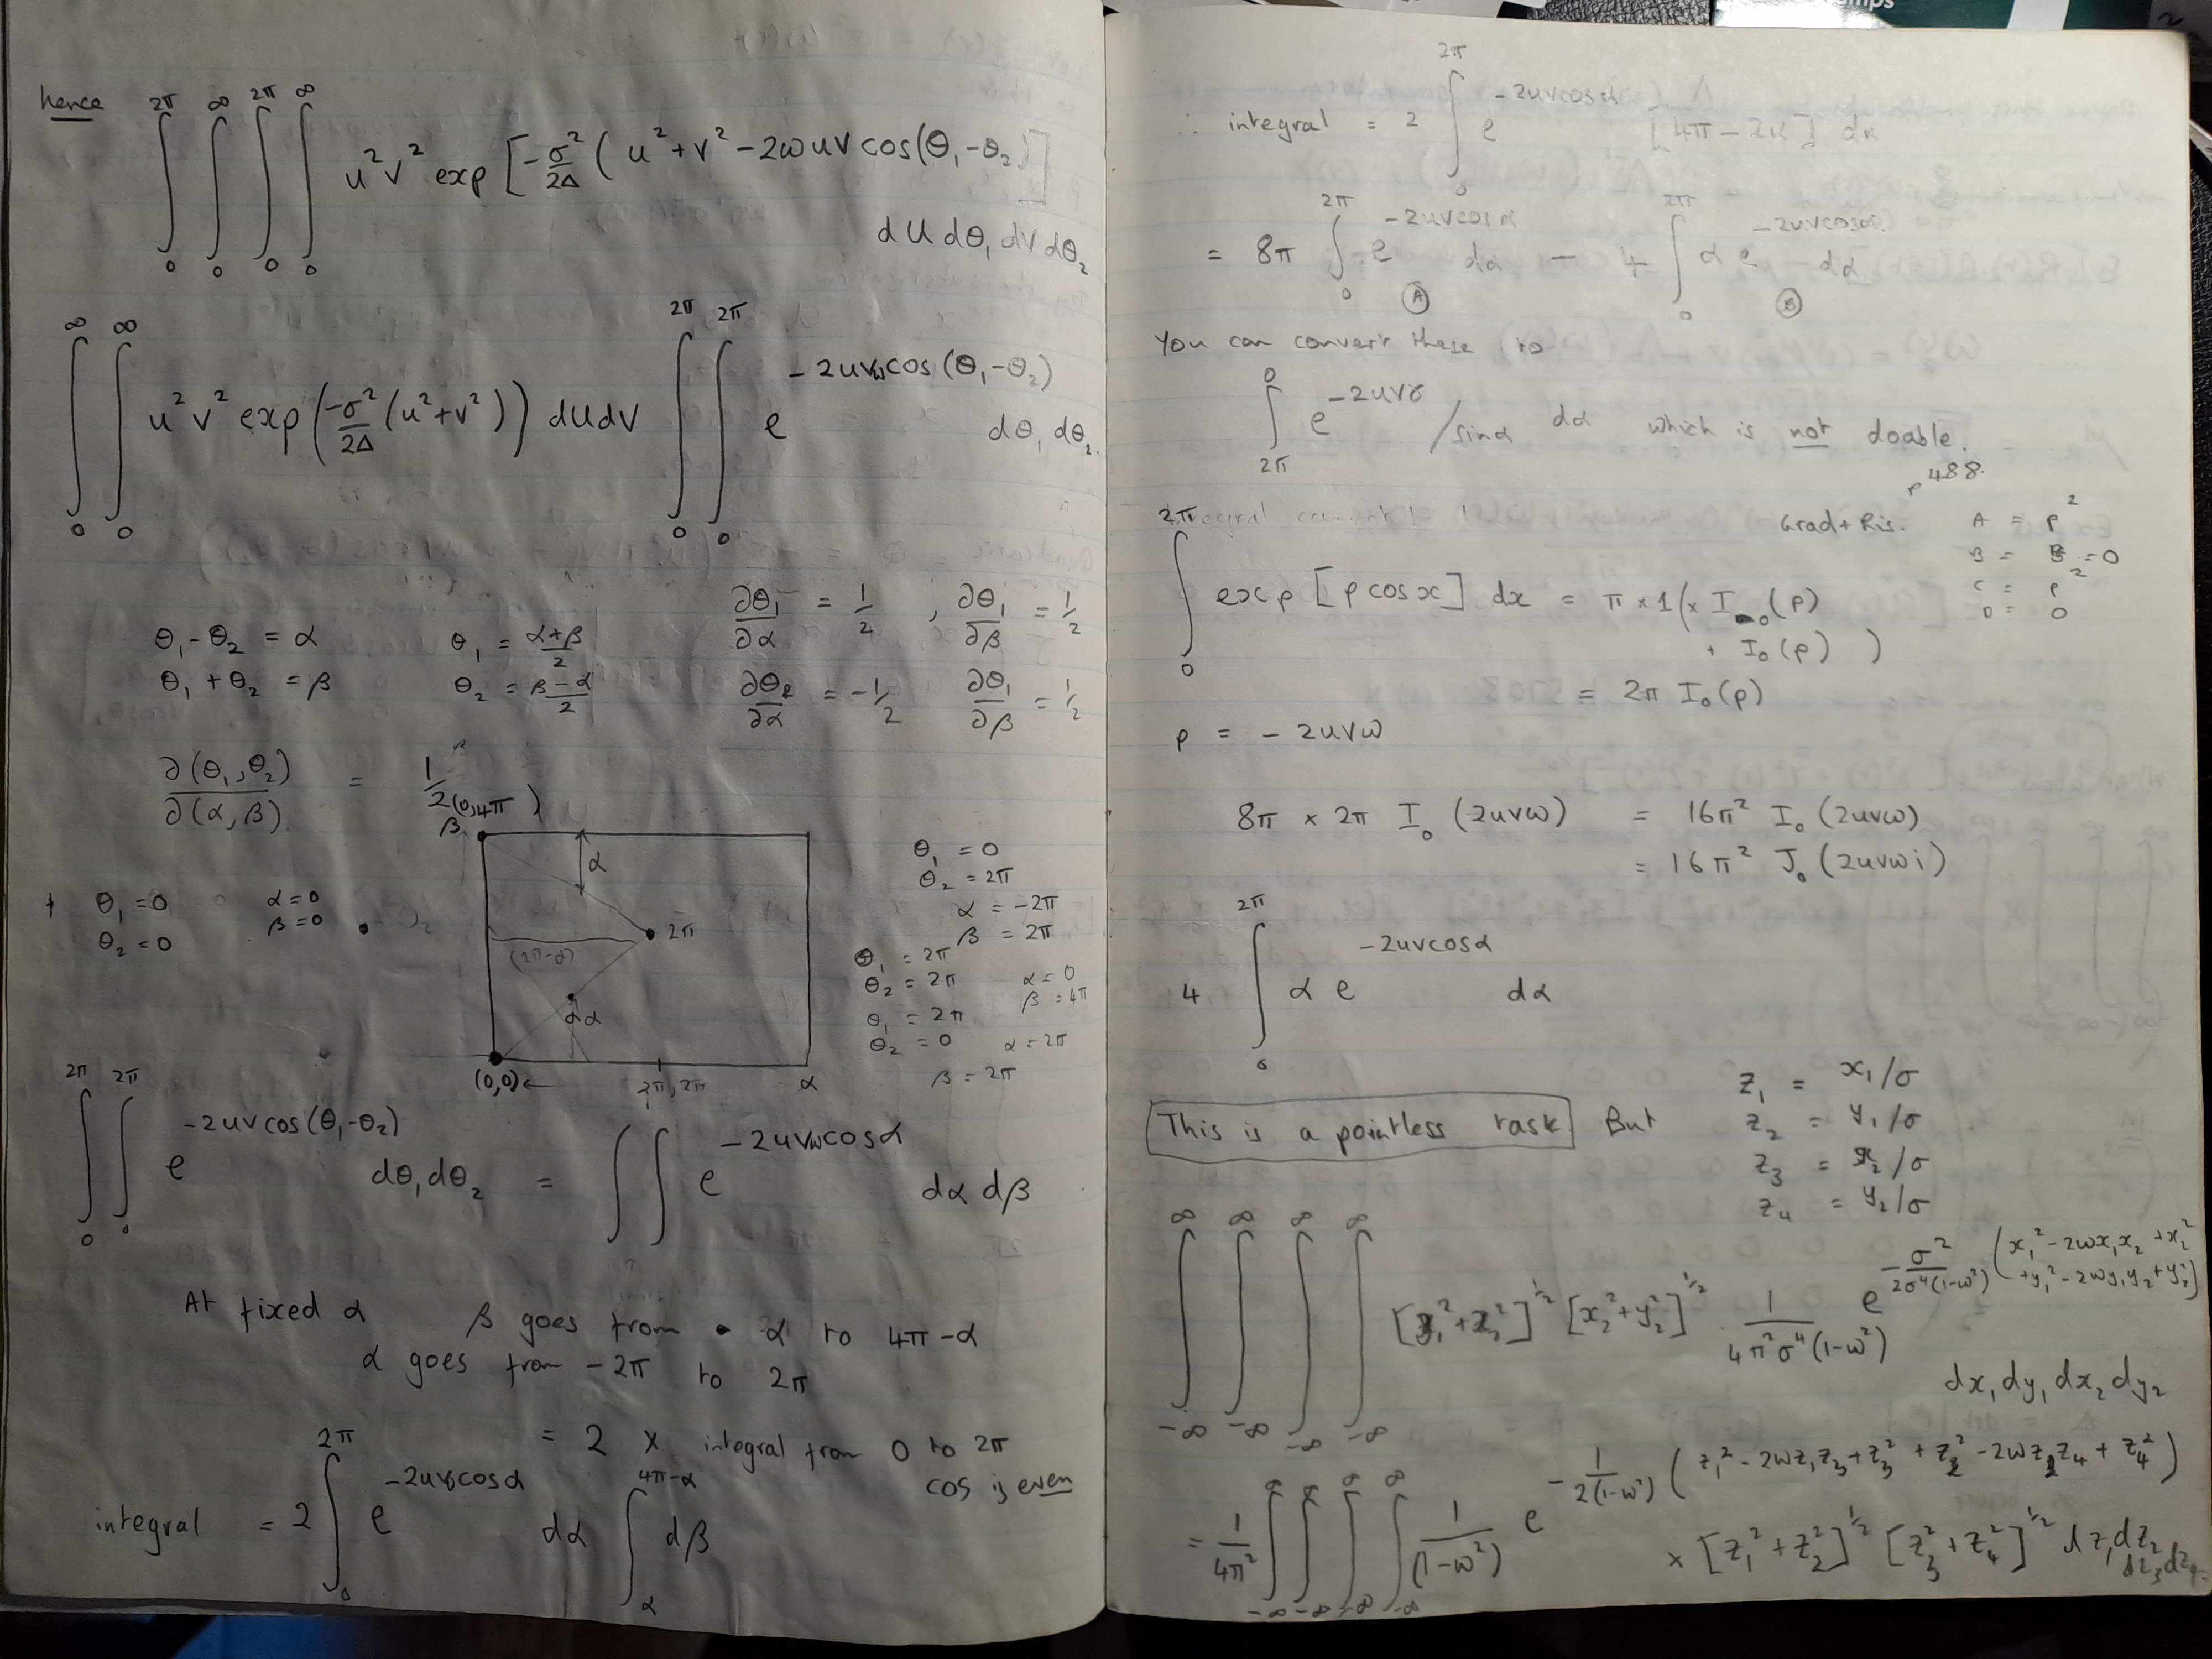 hence
∫₀^{2π} ∫₀^∞ ∫₀^{2π} ∫₀^∞ u²v² exp [-σ²/2Δ ( u² + v² - 2ωuv cos(θ₁-θ₂)]
du dθ₁ dv dθ₂
∫₀^∞ ∫₀^∞ u²v² exp(-σ²/2Δ (u²+v²)) du dv ∫₀^{2π} ∫₀^{2π} e^{-2uvω cos(θ₁-θ₂)} dθ₁ dθ₂
θ₁ - θ₂ = α θ₁ = (α+β)/2 ∂θ₁/∂α = 1/2 , ∂θ₁/∂β = 1/2
θ₁ + θ₂ = β θ₂ = (β-α)/2 ∂θ₂/∂α = -1/2 ∂θ₁/∂β = 1/2
∂(θ₁,θ₂)/∂(α,β) = 1/2
β
(0,4π)
β
α
2π
(2π-α)
α
(0,0)
2π, 2π
α
θ₁ = 0 α = 0
θ₂ = 0 β = 0
θ₁ = 0
θ₂ = 2π
α = -2π
β = 2π
θ₁ = 2π
θ₂ = 2π α = 0
β = 4π
θ₁ = 2π
θ₂ = 0 α = 2π
β = 2π
∫₀^{2π} ∫₀^{2π} e^{-2uv cos(θ₁-θ₂)} dθ₁ dθ₂ = ∫∫ e^{-2uvω cos α} dα dβ
At fixed α β goes from α to 4π-α
α goes from -2π to 2π
= 2 × integral from 0 to 2π
cos is even
integral = 2 ∫₀^{2π} e^{-2uv cos α} dα ∫_α^{4π-α} dβ
∴ integral = 2 ∫₀^{2π} e^{-2uv cos α} [4π - 2α] dα
= 8π ∫₀^{2π} e^{-2uv cos α} dα - 4 ∫₀^{2π} α e^{-2uv cos α} dα
Ⓐ Ⓑ
You can convert these to
∫_{2π}^0 e^{-2uvγ} / sin α dα which is not doable.
p 488.
Grad + Ris.
A = p²
B = B = 0
C = p²
D = 0
∫₀^{2π} exp [p cos x] dx = π × 1 (× I₀(p)
+ I₀(p) )
= 2π I₀(p)
p = - 2uvω
8π × 2π I₀ (2uvω) = 16π² I₀ (2uvω)
= 16π² J₀ (2uvωi)
4 ∫₀^{2π} α e^{-2uv cos α} dα
This is a pointless task But
z₁ = x₁/σ
z₂ = y₁/σ
z₃ = x₂/σ
z₄ = y₂/σ
∫_{-∞}^∞ ∫_{-∞}^∞ ∫_{-∞}^∞ ∫_{-∞}^∞ [ + ]^{1/2} [x₂² + y₂²]^{1/2} 1/(4π²σ⁴(1-ω²)) e^{-σ²/(2σ⁴(1-ω²)) (x₁² - 2ωx₁x₂ + x₂² + y₁² - 2ωy₁y₂ + y₂²)}
dx₁ dy₁ dx₂ dy₂
= 1/4π² ∫_{-∞}^∞ ∫_{-∞}^∞ ∫_{-∞}^∞ ∫_{-∞}^∞ 1/(1-ω²) e^{-1/(2(1-ω²)) (z₁² - 2ωz₁z₃ + z₃² + z₂² - 2ωz₂z₄ + z₄²)}
× [z₁² + z₂²]^{1/2} [z₃² + z₄²]^{1/2} dz₁ dz₂ dz₃ dz₄